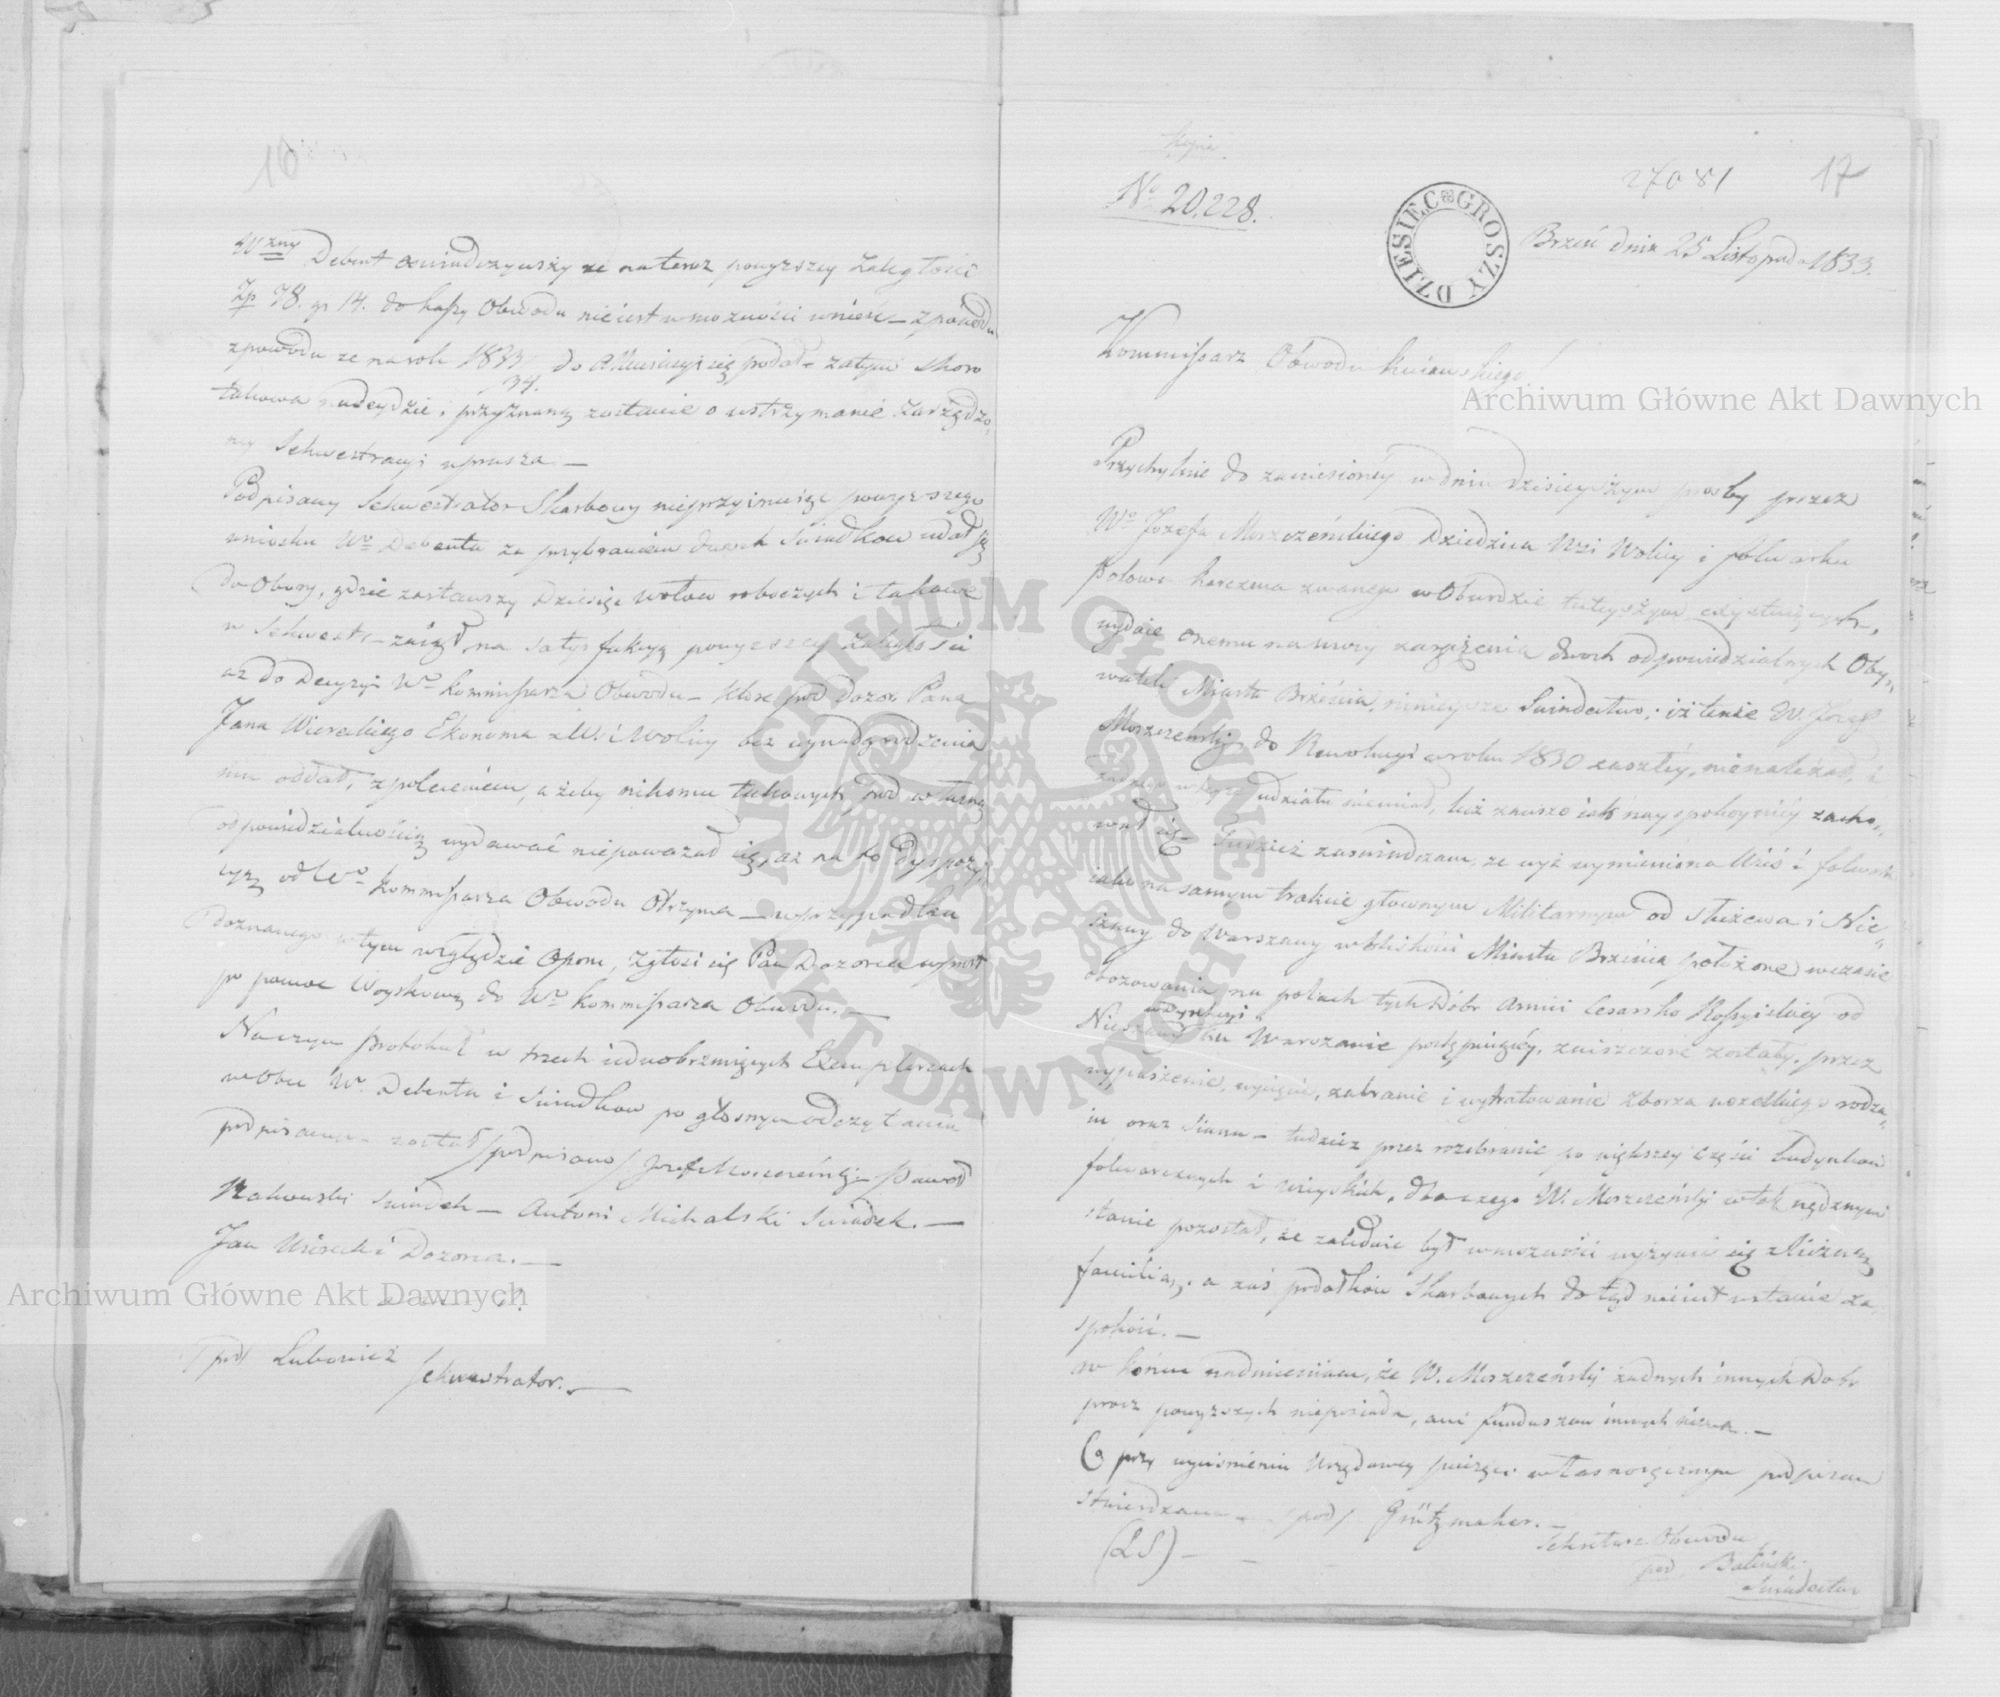 16
Wzny Debent oświadczywszy ze na teraz powyższey Zaległości
Zp 78. gr 14. do kassy Obwodu nieiest w możności wnieść – z powodu
z powodu ze na rok 1833/34. do się podał – zatym skoro
takowa nadeydzie i przyznaną zostanie o wstrzymanie zarządzo-
ney Sekwestracyi uprasza. –
Podpisany Sekwestrator Skarbowy nieprzyimuiąc powyższego
wniosku Wo Debenta za przybraniem dwoch Swiadkow udał się
do Obory, gdzie zastawszy dziesięc wołow roboczych i takowe
w Sekwestr – zaiął na satysfakcyą powyższey zaległości
az do Decyzyi Wo Kommissarza Obwodu – ktore pod dozor Pana
Jana Wiereckiego Ekonoma z Wsi Wolicy bez wynadgrodzenia
mu oddał, z poleceniem, ażeby nikomu takowych pod własną
odpowiedzialnością wydawać niepoważał się, aż na to dyspozy-
cyą od Wo Kommissarza Obwodu Otrzyma – w przypadku
Doznanego w tym względzie Oporu, zgłosi się Pan Dozorca wprost
po pomoc Woyskową do Wo Kommissarza Obwodu. –
Na czym protokuł w trzech iednobrzmiących Exemplarzach
wobec W. Debenta i Swiadkow po głosnym odczytaniu
podpisany – został /podpisano/ Jozef Moszczeński – Paweł
Rakowski Swiadek – Antoni Michalski Swiadek. –
Jan Wierecki Dozorca. –
/pod/ Lubowicz
Sekwestrator. –
Kopia
No 20,228.
27081
17
DZIESIĘC GROSZY DZIESIEC GROSZY
Brześć dnia 25 Listopada 1833.
Kommissarz Obwodu Kuiawskiego
Przychylnie do zaniesioney w dniu dzisieyszym prosby przez
Wo Jozefa Moszczeńskiego Dziedzica Wsi Wolicy i folwarku
Połowa Karczma zwanego w Obwodzie tuteyszym exystuiących,
wydaie onemu na mocy zaręczenia dwoch odpowiedzialnych Oby-
wateli Miasta Brześcia, ninieysze Swiadectwo; iż tenże W. Jozef
Moszczeński do Rewolucyi w roku 1830 zaszłey, nienależał, i
żadnego w teyże udziału niemiał, lecz zawsze iak nayspokoyniey zacho-
wał się – Tudzież zaswiadczam, ze wyż wymieniona Wieś i folwark
iako na samym trakcie głownym Militarnym od Służewa i Nie-
szawy do Warszawy w bliskości Miasta Brześcia położone w czasie
obozowania na polach tych Dobr Armii Cesarsko Rossyiskiey od
Nieszawy ku Warszawie postępuiącey, zniszczone zostały, przez
wypaszenie, wycięcie, zabranie i wytratowanie zborza wszelkiego rodza-
iu oraz Siana – tudzież przez rozebranie po większey części budynkow
folwarcznych i wieyskich, dla czego W. Moszczeński w tak nędznym
stanie pozostał, że zaledwie był w możności wyżywić się z liczną
familią, a zaś podatkow Skarbowych do tąd nieiest w stanie za-
spokoić. –
w końcu nadmieniam, że W. Moszczeński żadnych innych Dobr
procz powyższych nieposiada, ani funduszow innych niema. –
Co przy wyciśnieniu Urzędowey pieczęci własnoręcznym podpisem
stwierdzam – /pod/ Grützmacher. –
(LS) –
Sekretarz Obwodu
pod. Baliński
Swiadectwo
Archiwum Główne Akt Dawnych
Archiwum Główne Akt Dawnych
ARCHIWUM GŁÓWNE · AKT DAWNYCH ·